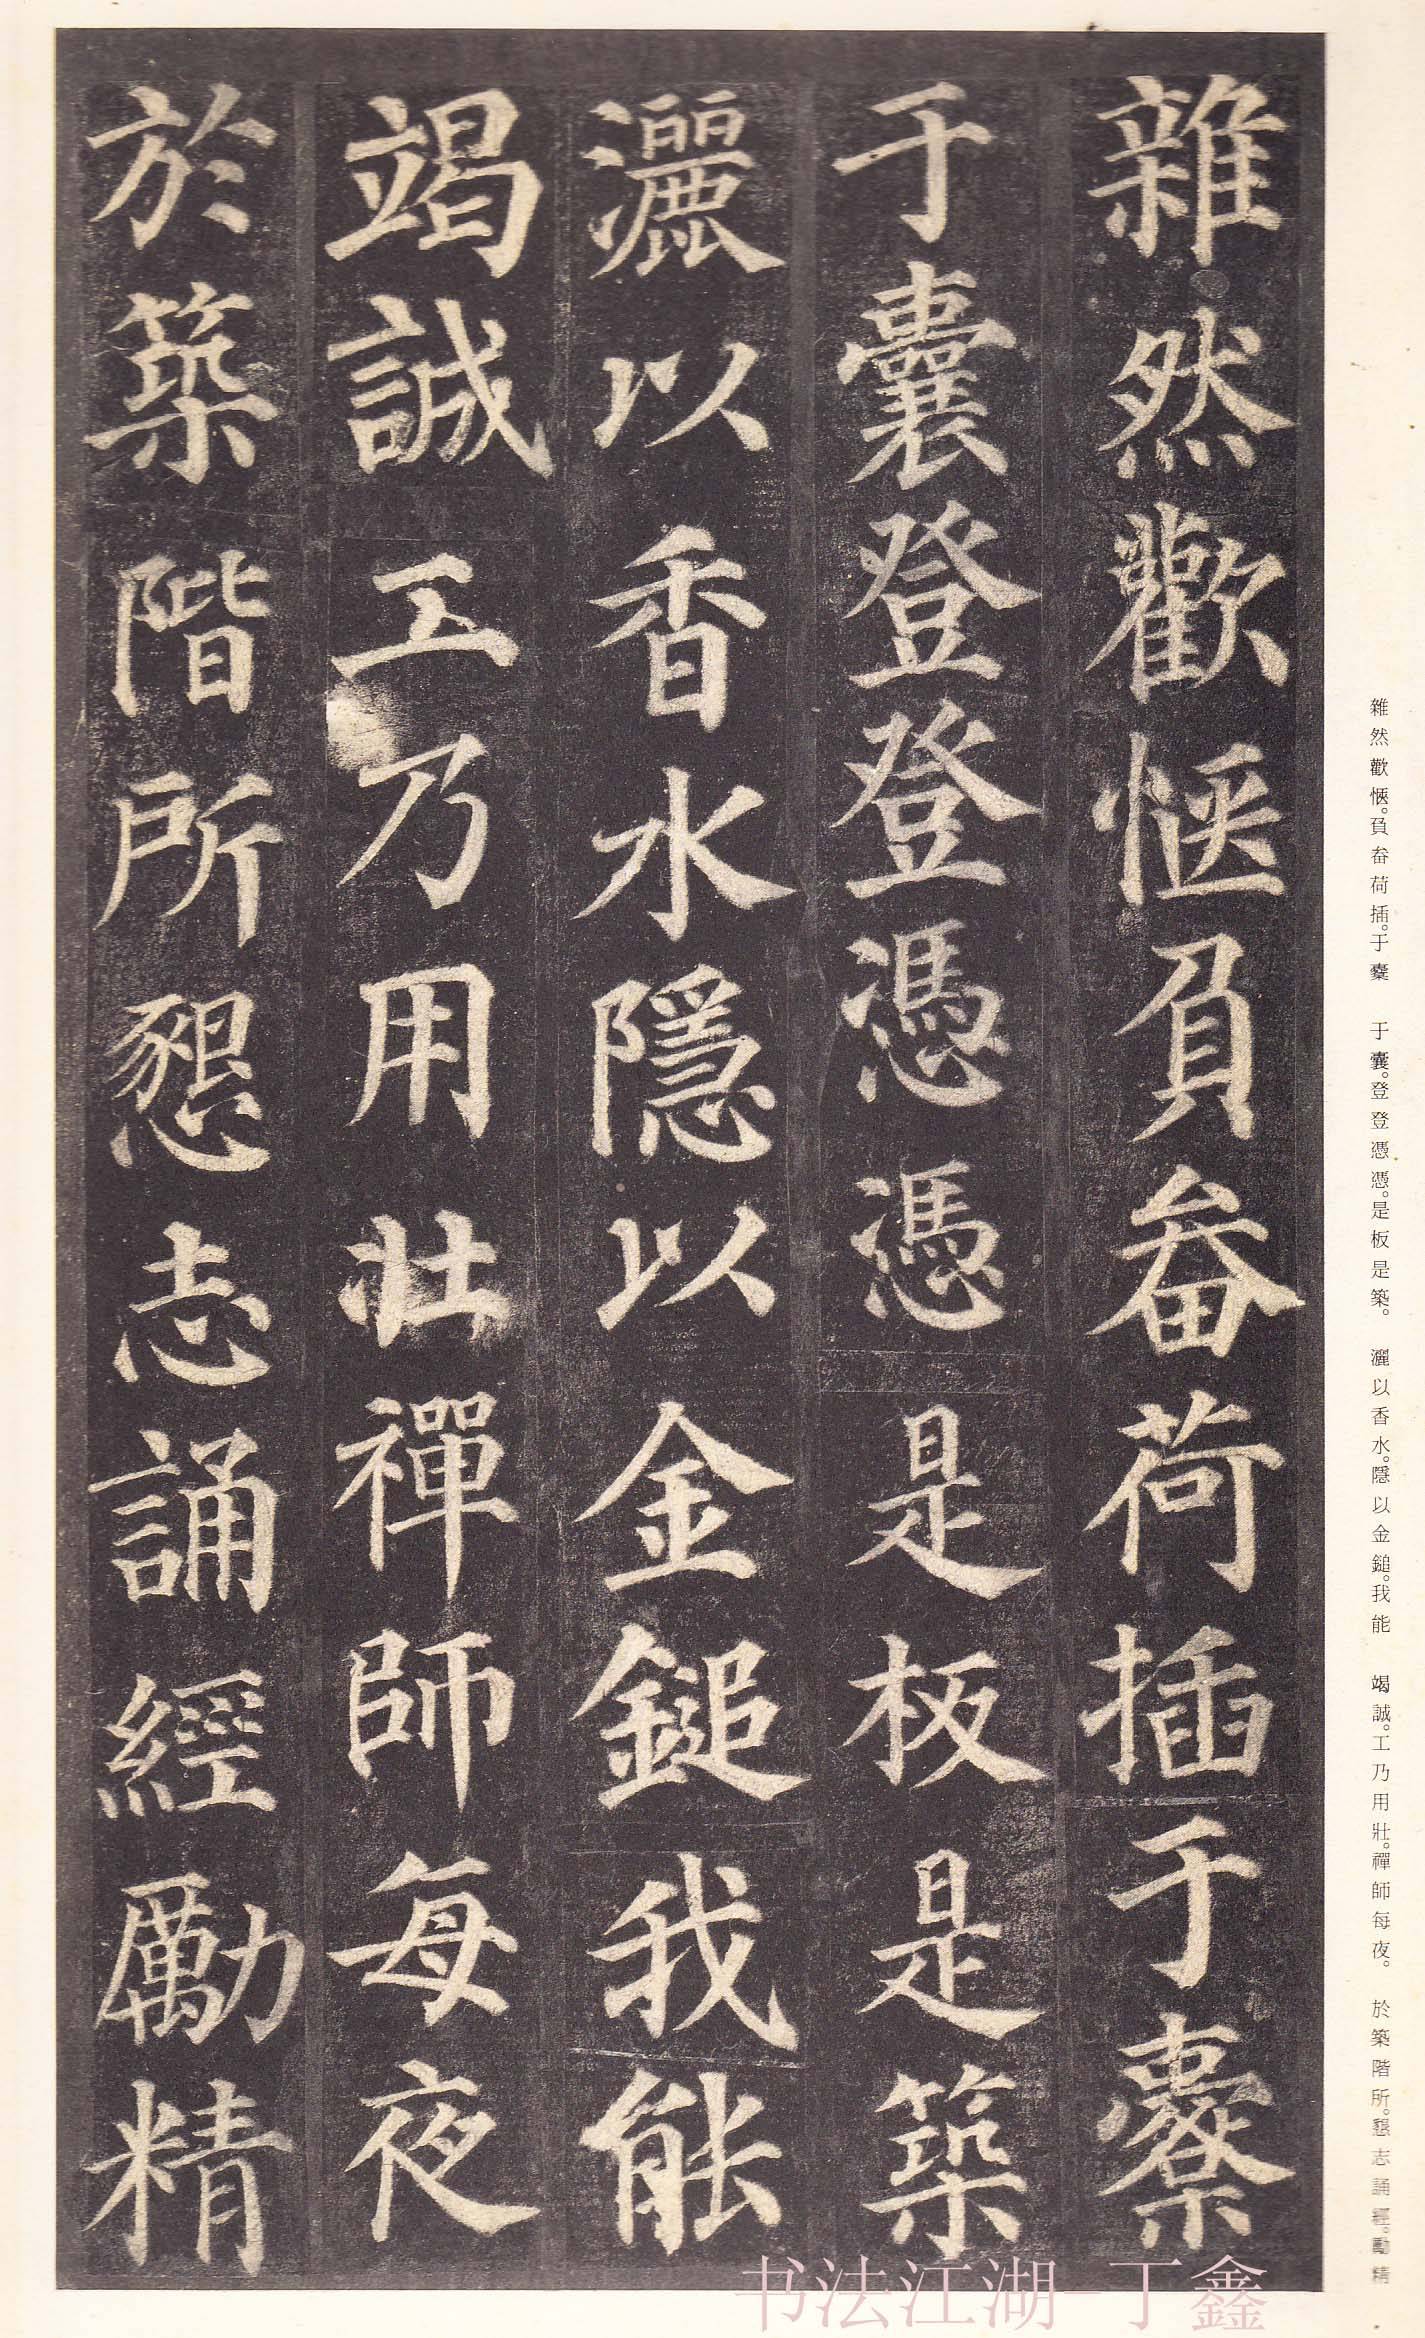 雜然歡愜負畚荷插于橐
于囊登登憑憑是板是築
灑以香水隱以金鎚我能
竭誠工乃用壯禪師每夜
於築階所懇志誦經勵精
雜然歡愜。負畚荷插。于橐　于囊。登登憑憑。是板是築。　灑以香水。隱以金鎚。我能　竭誠。工乃用壯。禪師每夜。　於築階所。懇志誦經。勵精
书法江湖 丁鑫